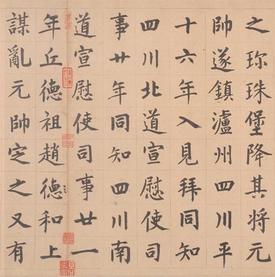 之珎珠堡降其将元
帥遂鎮瀘州四川平
十六年入見拜同知
四川北道宣慰使司
事廿年同知四川南
道宣慰使司事廿一
年丘德祖趙德和上
謀亂元帥定之又有